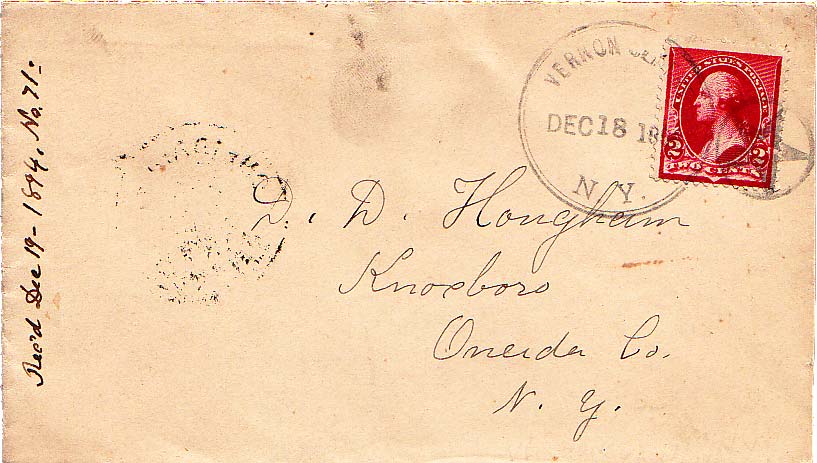 Rec'd Dec 19 - 1894, No. 71 -
VERNON CEN
DEC 18 18
N.Y.
UNITED STATES POSTAGE
2 2
TWO CENTS
D. D.
Knoxboro
Oneida Co.
N. Y.